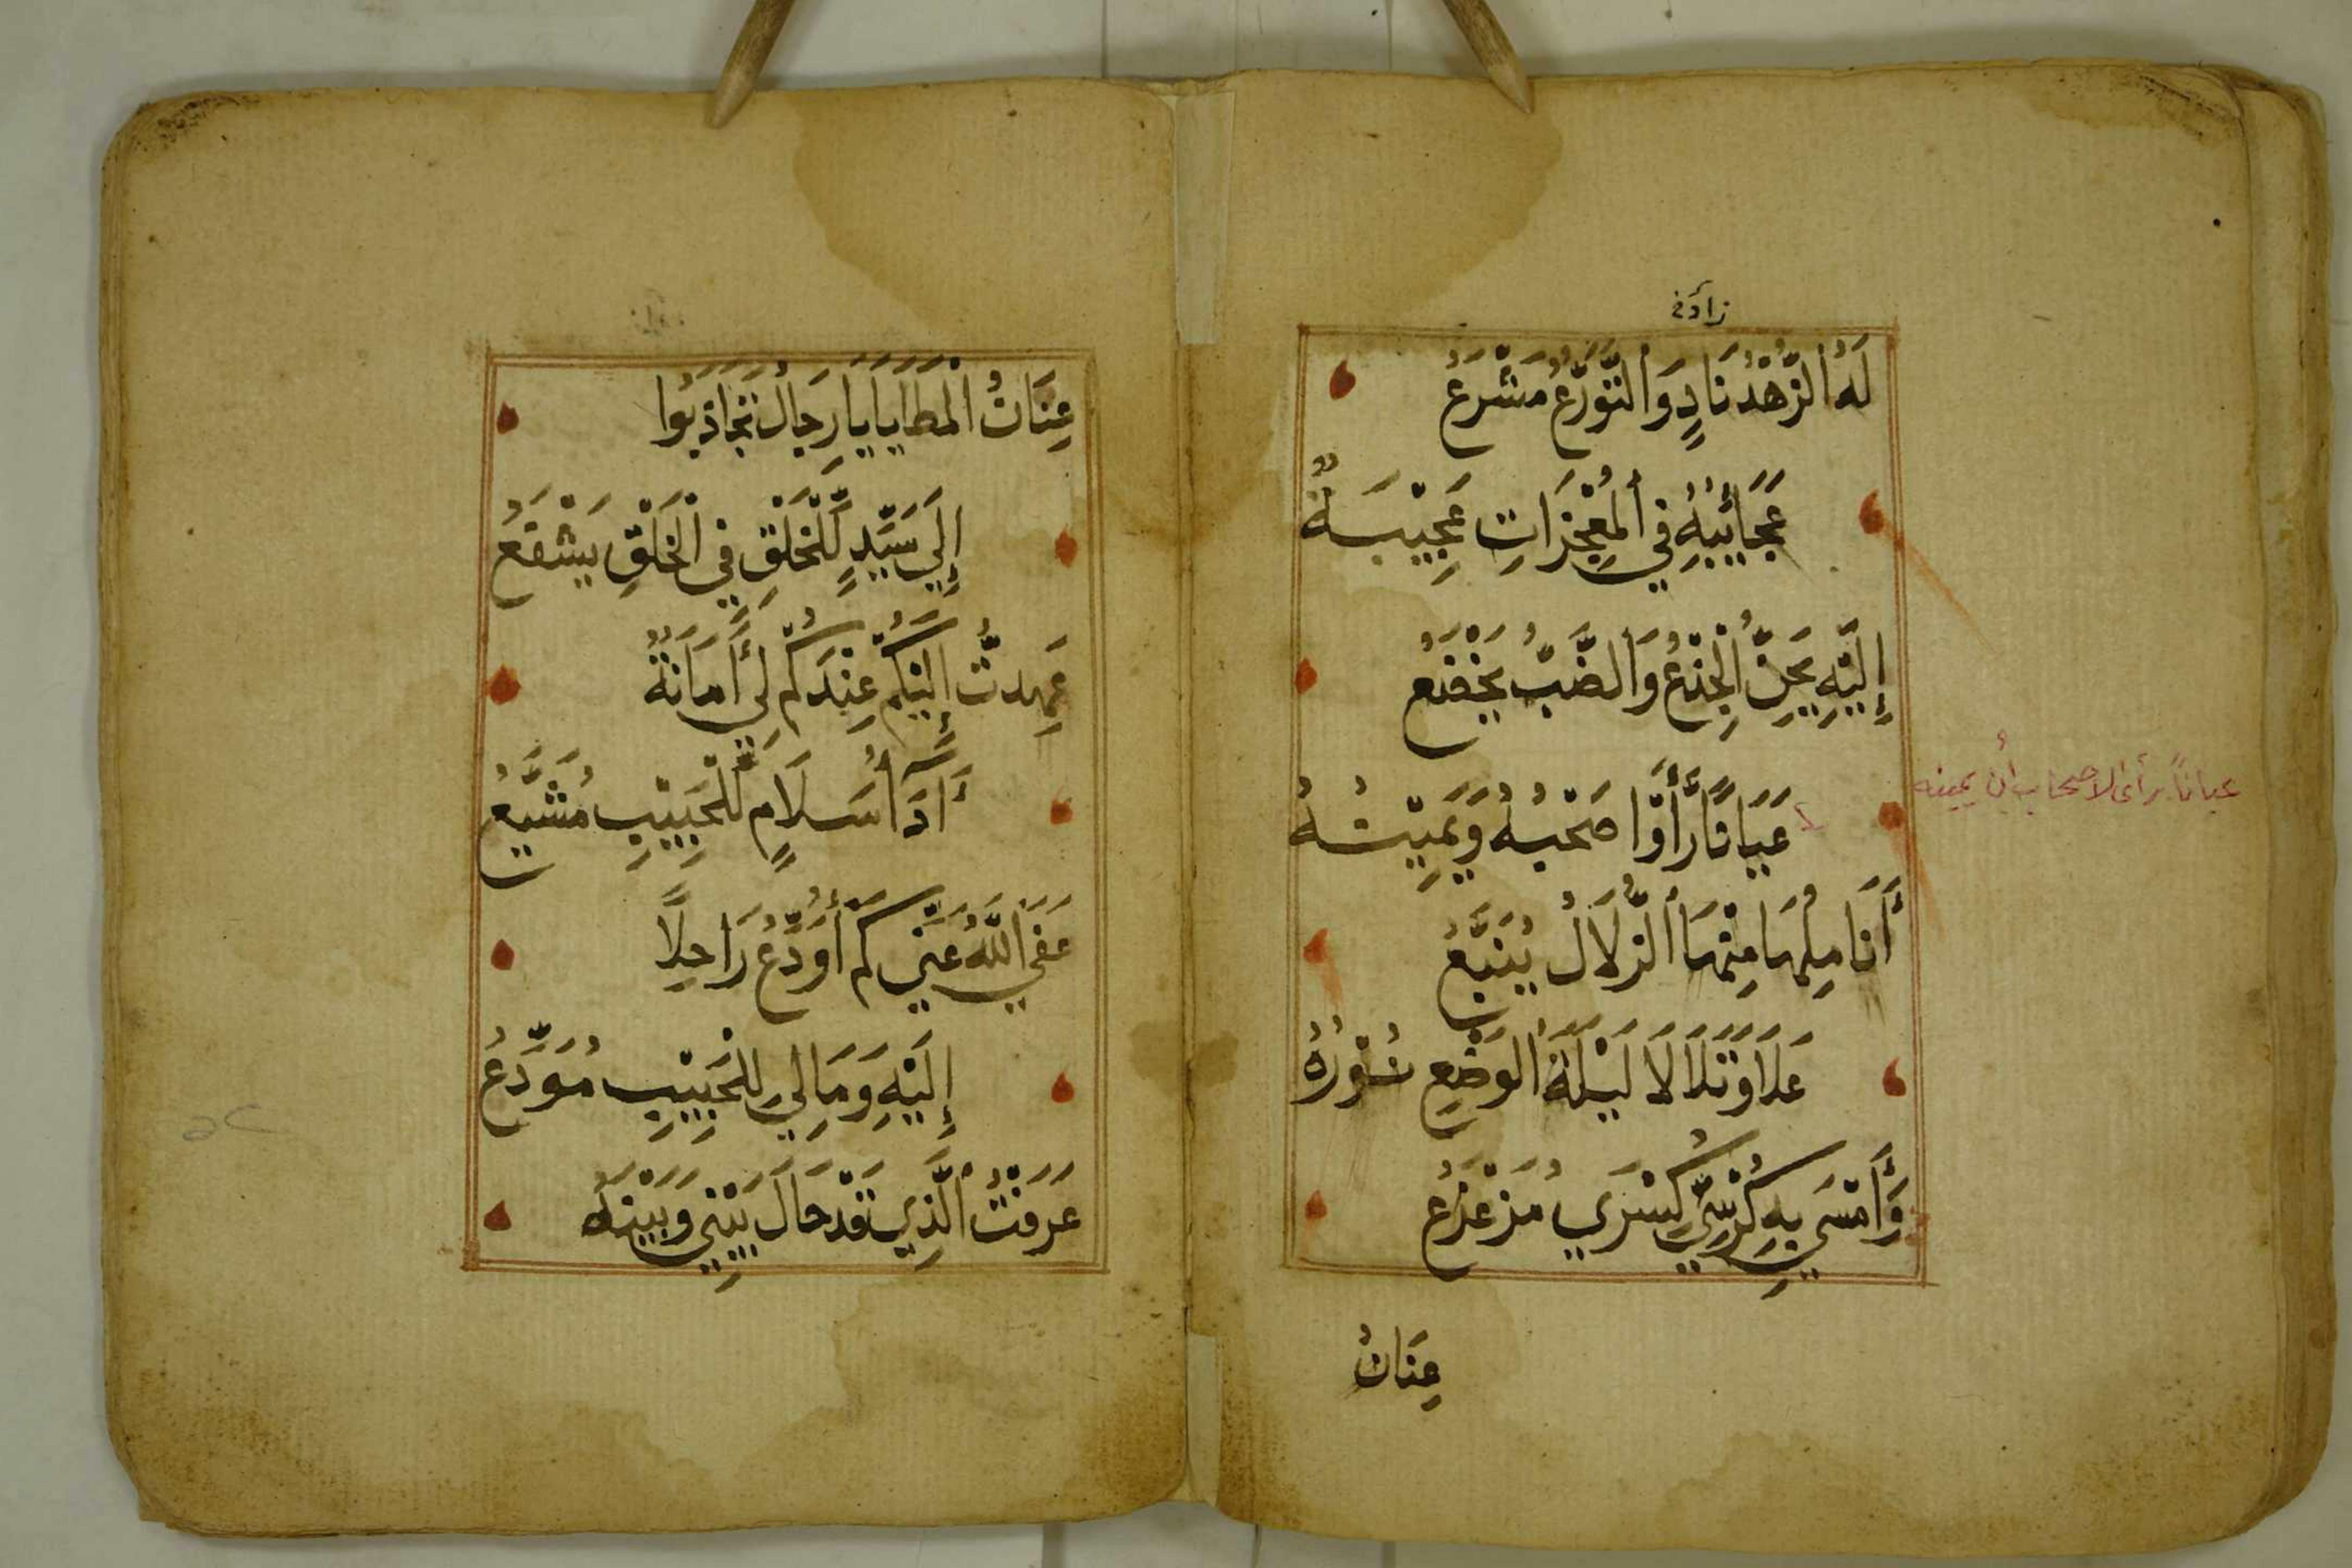 زاد
لَهُ الزُّهْدُ نَادٍ وَالتَّوَرُّعُ مَشْرَعُ
عَجَائِبُهُ فِي الْمُعْجِزَاتِ عَجِيْبَةٌ
إِلَيْهِ يَحِنُّ الْجِذْعُ وَالضَّبُّ يَخْضَعُ
عَيَانًا رَأَوْا صَحْبُهُ وَيَمِيْنُهُ
عيانًا رأى الاصحاب أن يمينه
أَنَامِلُهَا مِنْهَا الزُّلَالُ يُنَبَّعُ
عَلَا وَتَلَالَا لَيْلَةَ الْوَضْعِ نُوْرُهُ
وَأَمْسَى بِهِ كُرْسِيُّ كِسْرَي مُزَعْزَعُ
عِنَانُ
عِنَانُ الْمَطَايَا يَا رِجَالُ تَجَاذَبُوا
إِلَي سَيِّدٍ لِّلْخَلْقِ فِي الْخَلْقِ يَشْفَعُ
عَهِدتُّ إِلَيْكُمْ عِنْدَكُمْ لِي أَمَانَةٌ
أَدَاءُ سَلَامٍ لِّلْحَبِيْبِ مُشَيَّعُ
عَفَي اللَّهُ عَنِّي كَمْ أُوَدِّعُ رَاحِلًا
إِلَيْهِ وَمَا لِي لِلْحَبِيْبِ مُوَدَّعُ
عَرَفْتُ الَّذِي قَدْ حَالَ بَيْنِي وَبَيْنَهُ